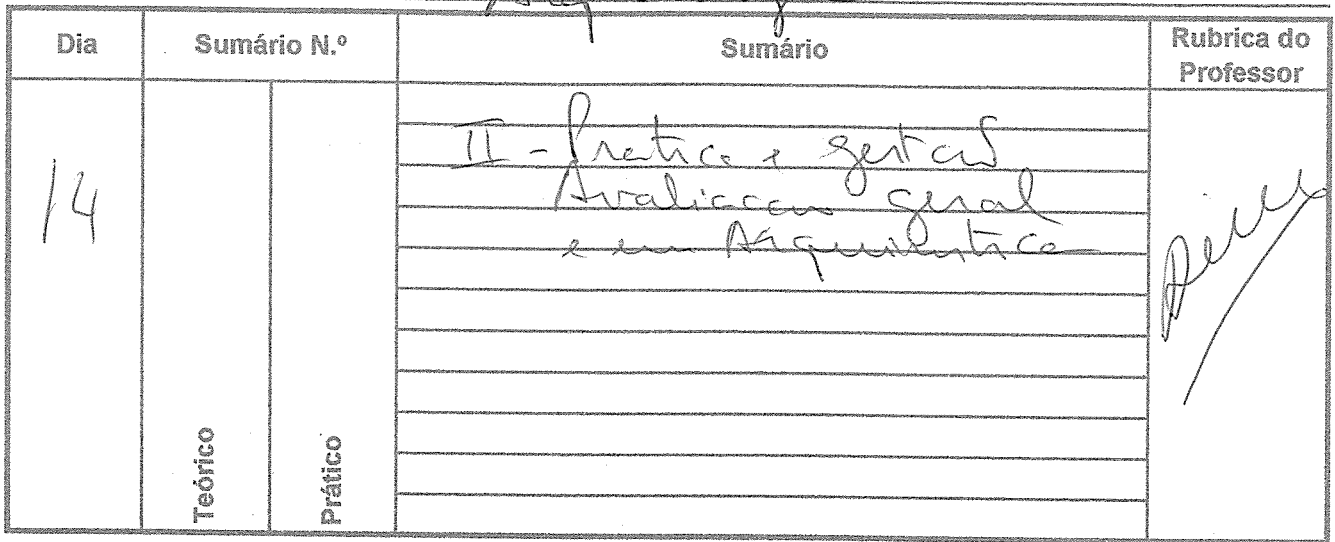 Dia Sumário N.º Sumário Rubrica do Professor
Teórico Prático
14
II - Pratica e gestão
Avaliacao geral
e em Arquivistica